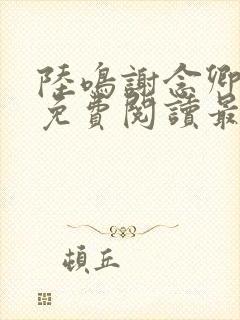 陸鳴謝念卿
免費閱讀最
頓丘